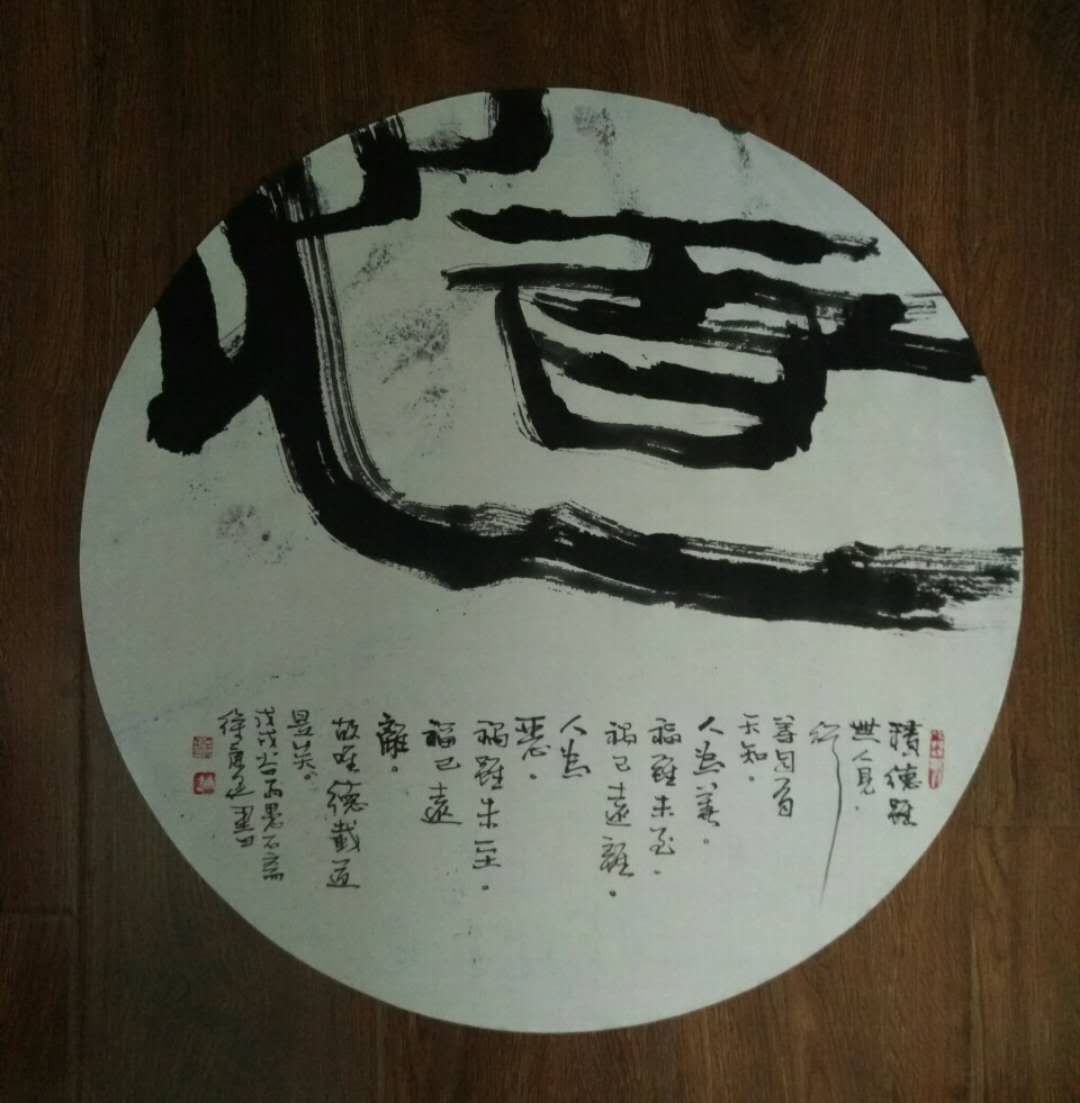 道
積德雖
無人見.
行
善自有
天知。
人為善。
福雖未至.
禍已遠離。
人為
惡。
禍雖未至。
福已遠
離。
故唯德載道
是矣。
戊戌
徐